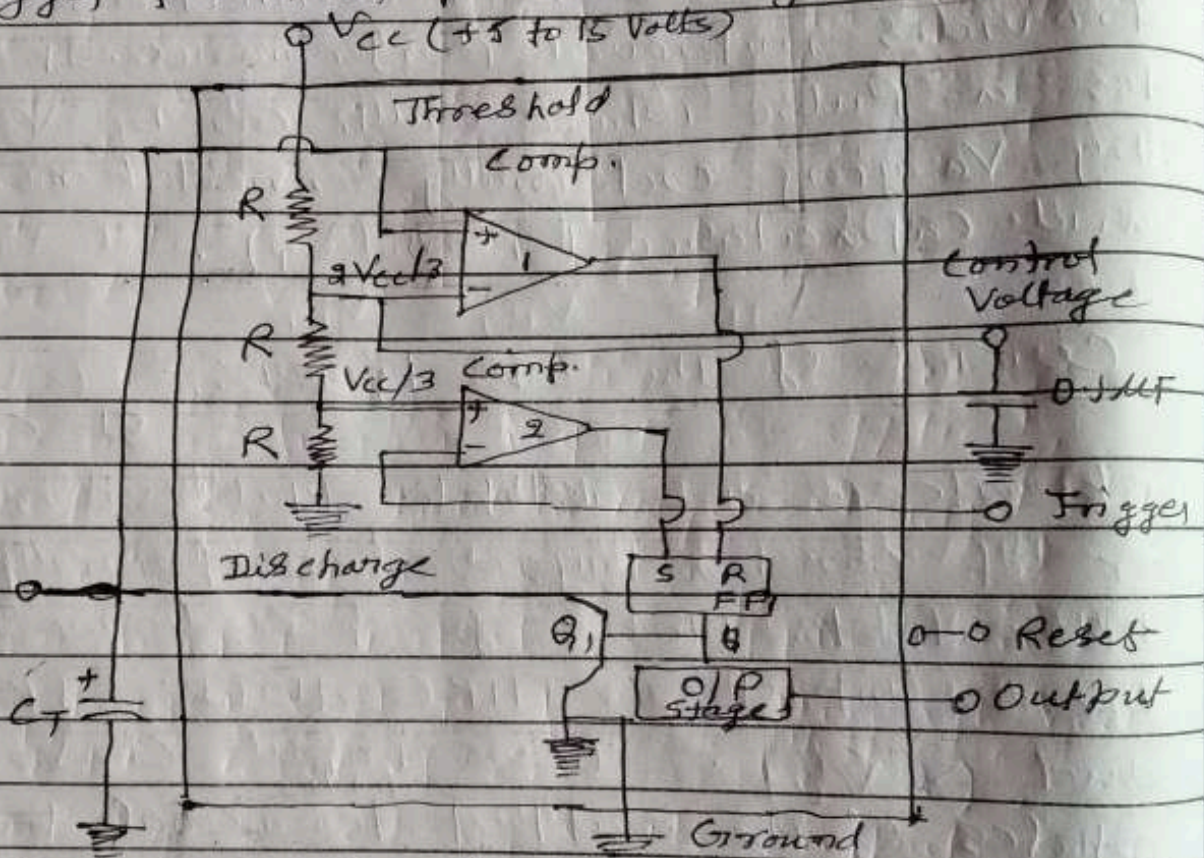 Vcc (+5 to 15 Volts)
Threshold
Comp.
R
+
1
2Vcc/3
-
Control
Voltage
R
Vcc/3
Comp.
+
2
-
R
Trigger
Discharge
S R
FF
Q1
Reset
O/P
Stage
Output
+
CT
Ground